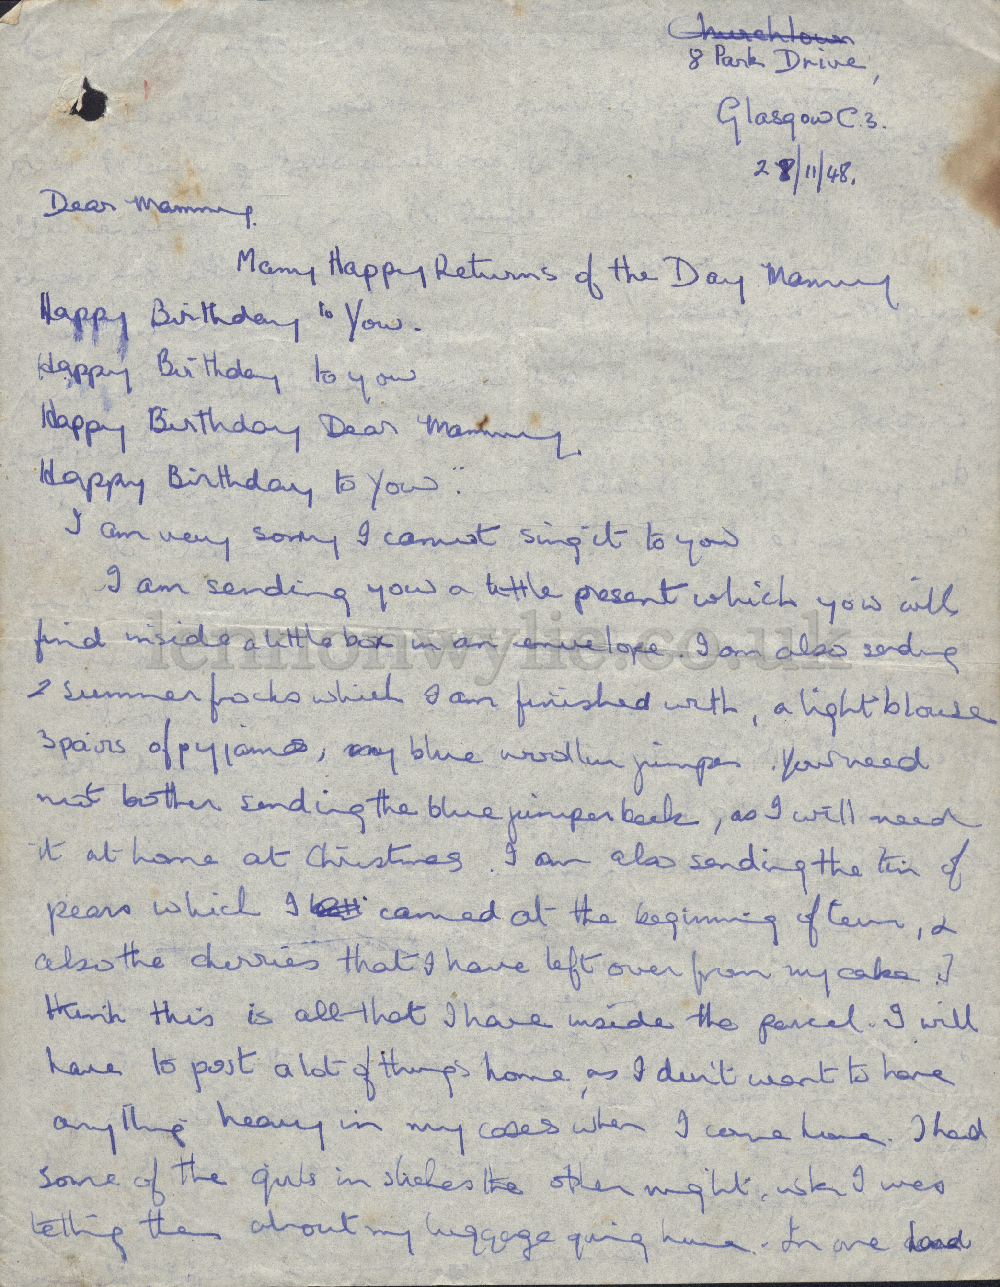 Churchtown
8 Park Drive,
Glasgow C.3.
28/11/48.
Dear Mammy.
Many Happy Returns of the Day Mammy
Happy Birthday to You.
Happy Birthday to you
Happy Birthday Dear Mammy,
Happy Birthday to You".
I am very sorry I cannot sing it to you
I am sending you a little present which you will
find inside a little box in an envelope. I am also sending
2 summer frocks which I am finished with, a light blouse
3 pairs of pyjamas, my blue woollen jumper. You need
not bother sending the blue jumper back, as I will need
it at home at Christmas. I am also sending the tin of
pears which I carried at the beginning of term, &
also the cherries that I have left over from my cake. I
think this is all that I have inside the parcel. I will
have to post a lot of things home, as I don't want to have
anything heavy in my cases when I come home. I had
some of the girls in stiches the other night, when I was
telling them about my luggage going home. In one hand
lennonwylie.co.uk